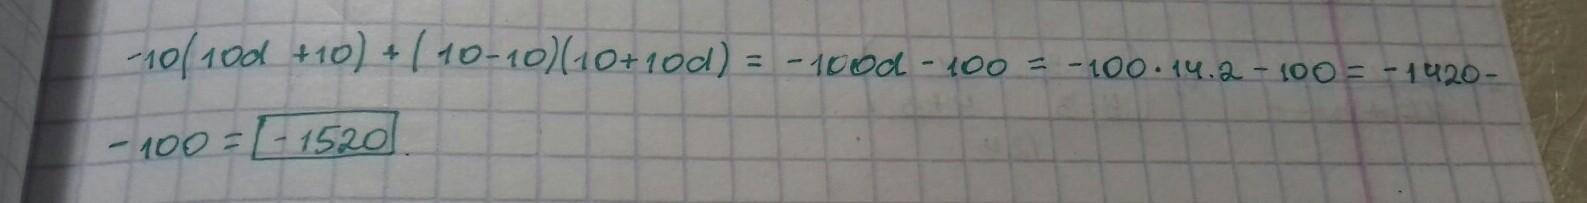 -10(10d +10) + (10-10)(10+10d) = -100d - 100 = -100·14.2 - 100 = -1420-
-100 = -1520.